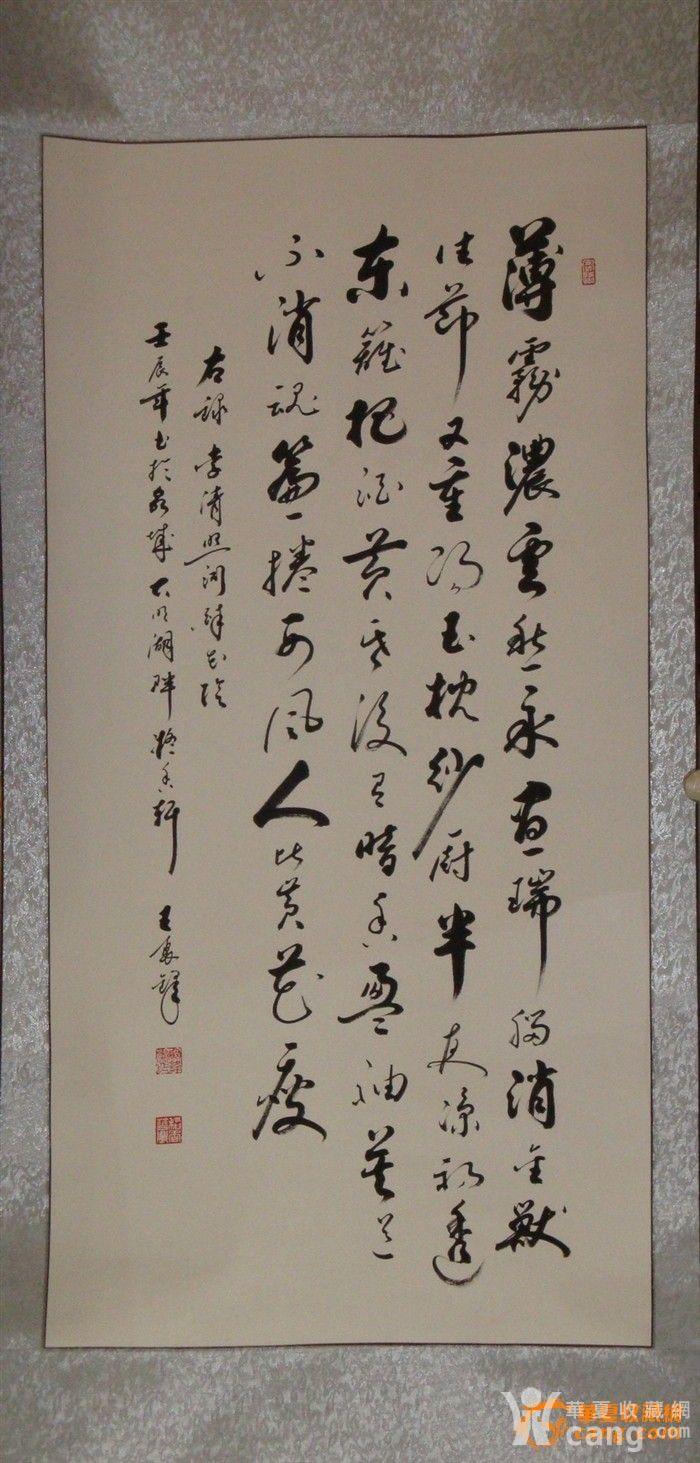 薄霧濃雲愁永晝瑞腦消金獸
佳節又重陽玉枕紗廚半夜涼初透
東籬把酒黃昏後有暗香盈袖莫道
不消魂簾捲西風人比黃花瘦
右錄李清照詞醉花陰
壬辰年書於泉城大明湖畔香軒王
華夏收藏網
cang.com